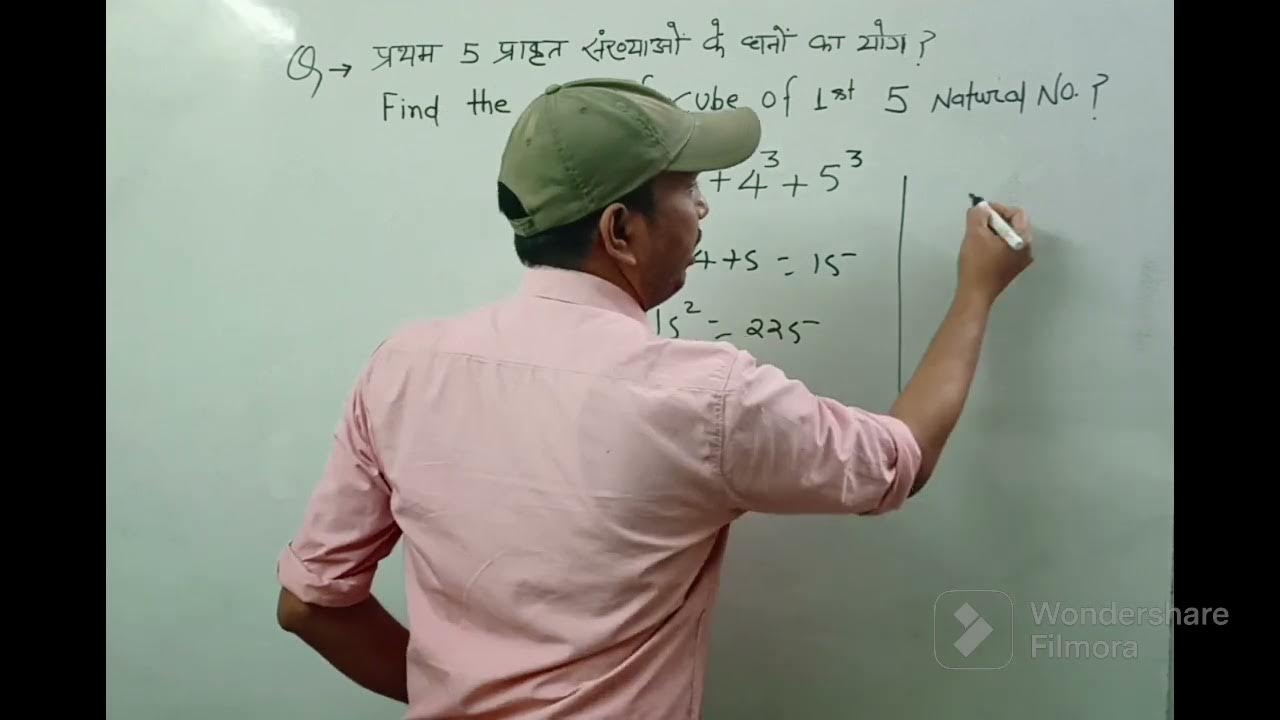 Q → प्रथम 5 प्राकृत संख्याओं के घनों का योग ?
Find the cube of 1st 5 Natural No. ?
+ 4³ + 5³
4 + 5 = 15
15² = 225
Wondershare
Filmora